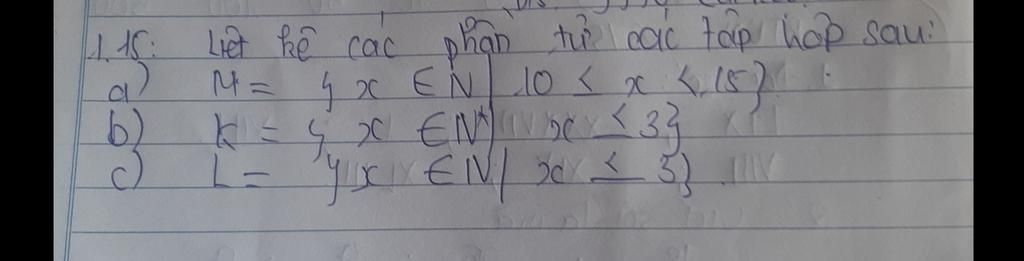 1.15: Liệt kê các phần tử các tập hợp sau:
a) M = { x ∈ N | 10 ≤ x < 15}
b) K = { x ∈ N* | x ≤ 3}
c) L = { x ∈ N | x ≤ 5}